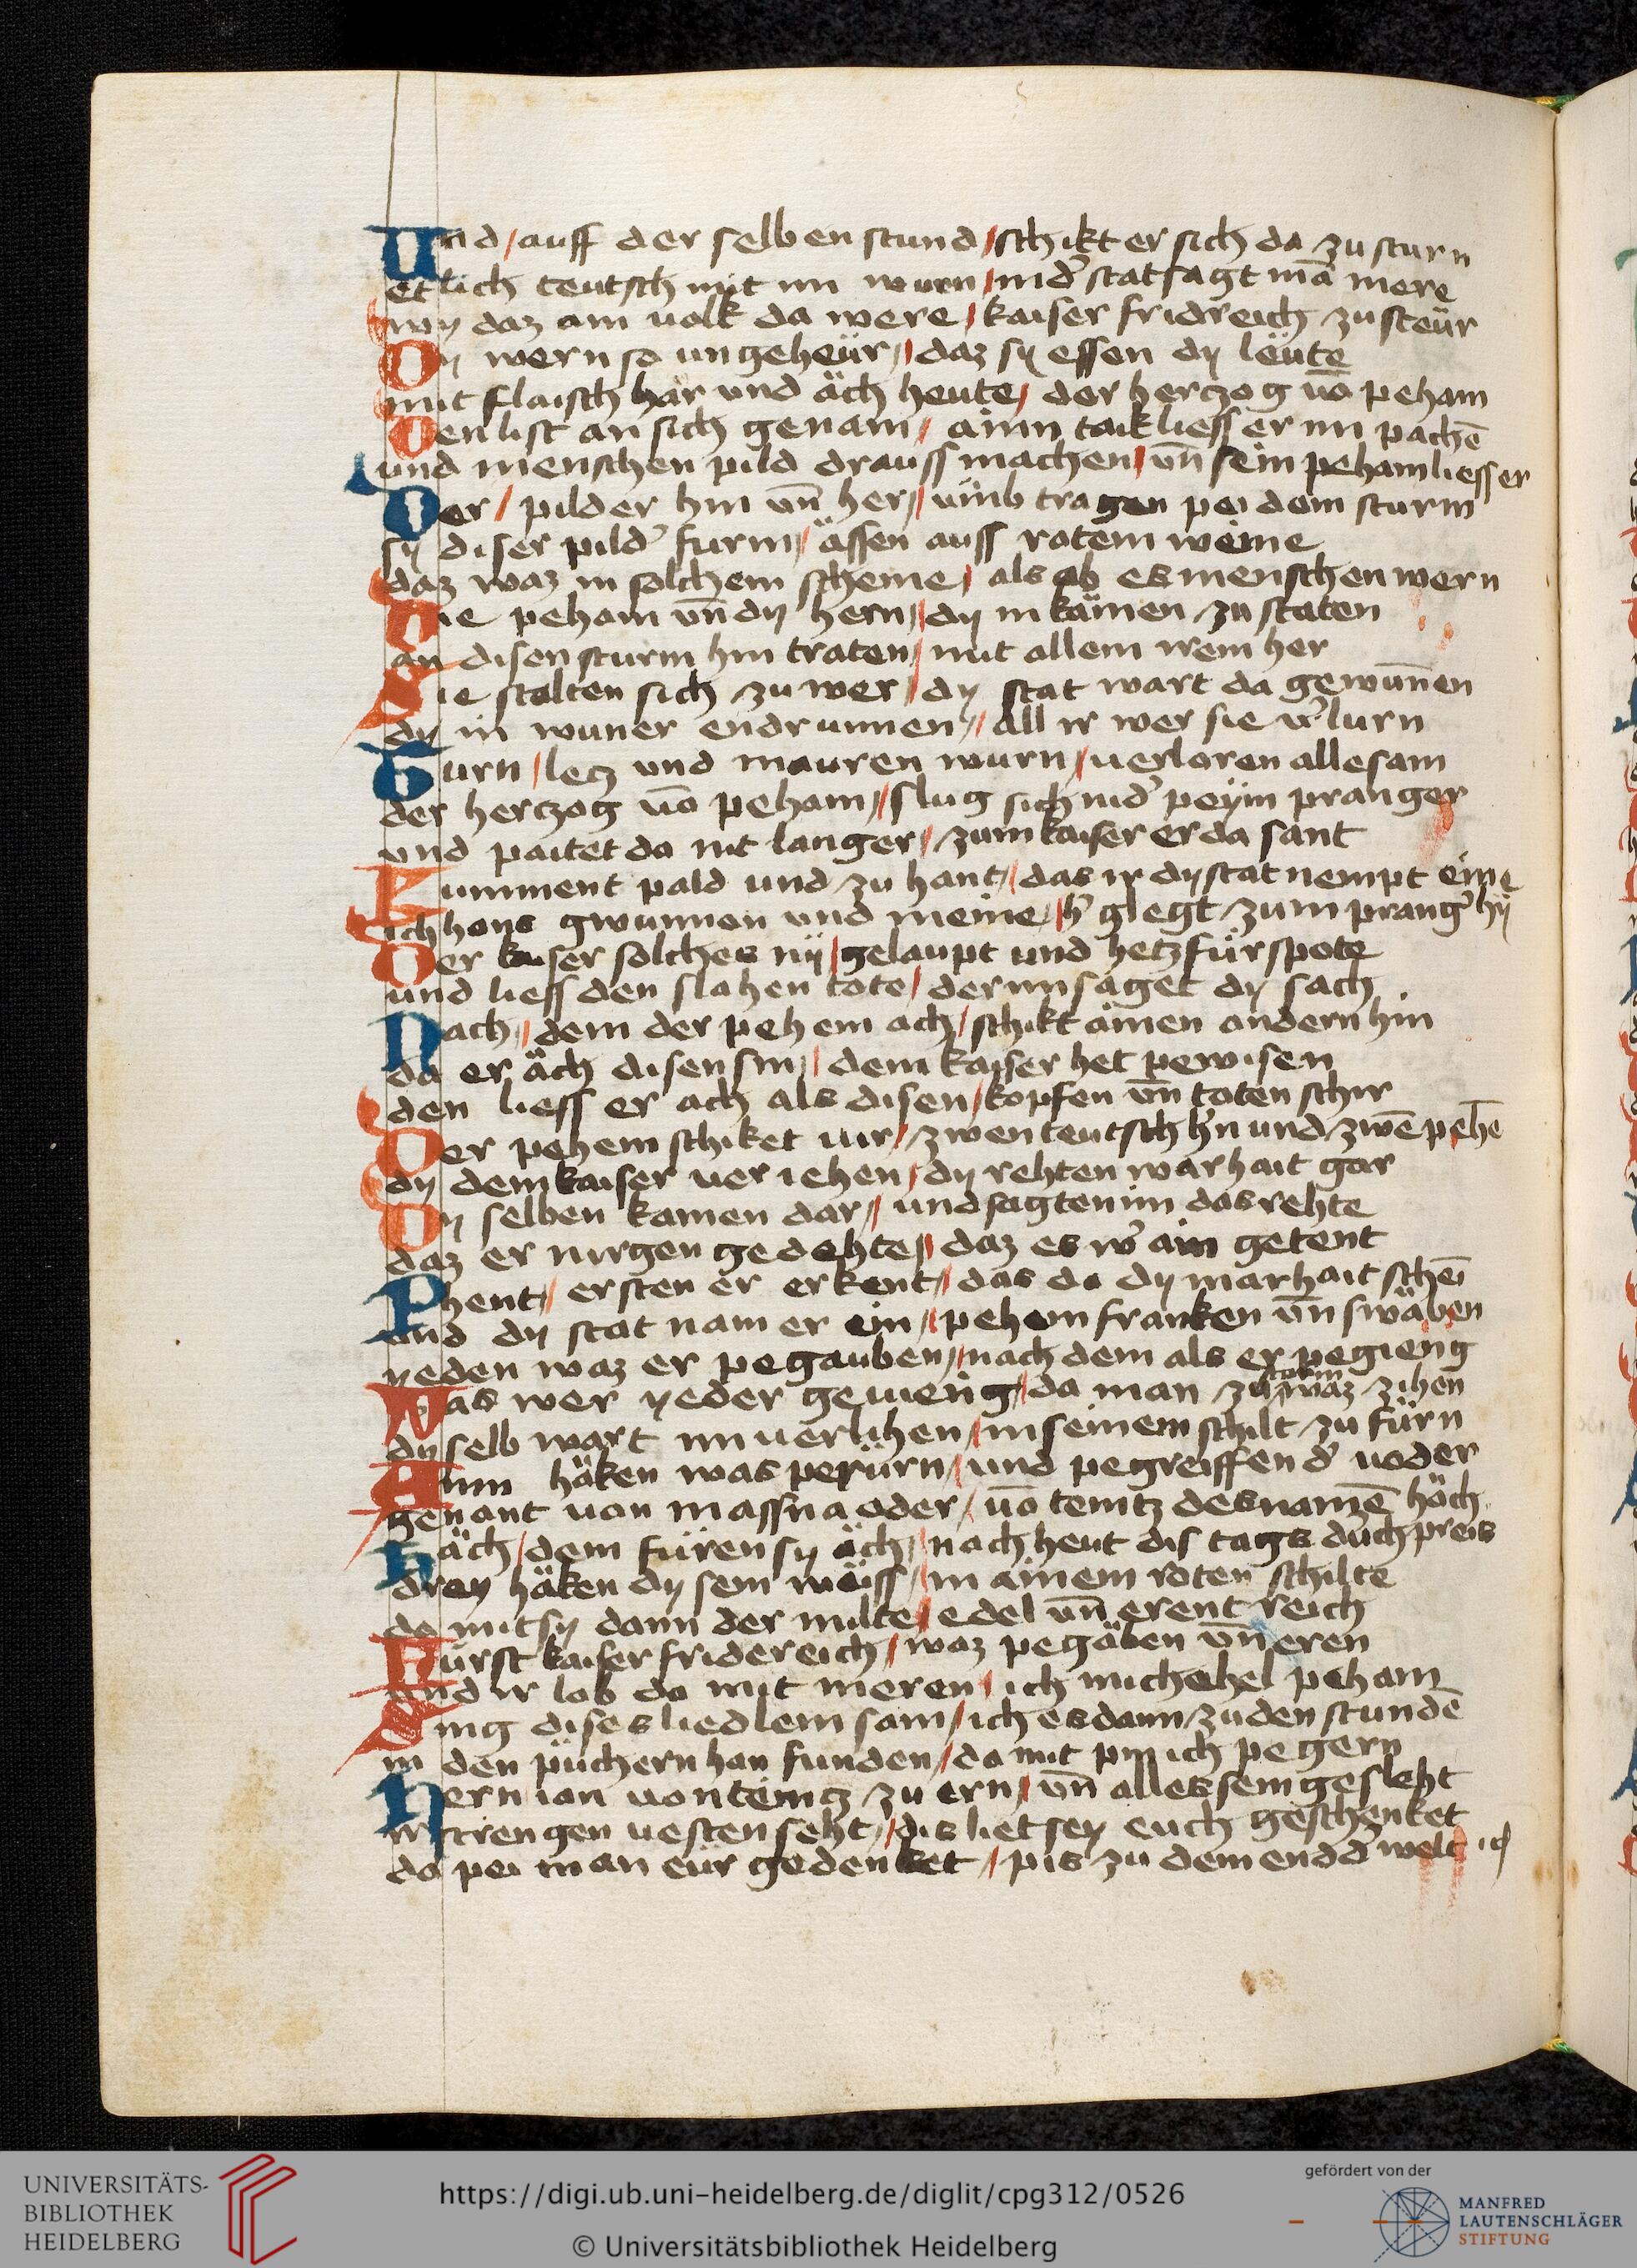 Und / auff der selben stund / schikt er sich da zu sturn
etlich teutsch mit im wurn / in d̕ stat sagt mā mere
wy daz am uolk da were / kaiser fridreich zu steür
Dy wern so ungeheür / daz sy essen dy leüte
mit flaisch här und äch heute / der herczog uō peham
Den list an sich genam / ainn taik liess er im pachē
und menschen pild drauss machen / vn̄ sein peham liess er
Der / pilder hin vn̄ her / umb tragen pei dem sturm
sy diser pild̕ furm / ässen auss rotem weine
daz waz in solchem scheine / als ob es menschen wern
Die peham vn̄ dy hern / dy in kämen zu staten
an disen sturm hin traten / mit allem irem her
Sie stalten sich zu wer / dy stat wart da gewun̄en
dy in wuner endrunnen / all ir wer sie v̕lurn
Turn / letz und mauren wurn / uerloren allesam
der herczog uō peham / slug sich nid̕ peym pranger
und paitet da nit langer / zum kaiser er da sant
Kumment pald und zu hant / das ir dy stat nempt eine
ich hons gwunnen und meine / h̕ glegt zum prang̕ hy
Der kaiser solches ny / gelaupt und hetz für spote
und liess den slahen tote / der im saget dy sach
Nach / dem der pehem ach / schikt ainen andern hin
da er äch disen sin / dem kaiser het pewisen
den liess er ach als disen / kopfen vn̄ toten schir
Der pehem schiket uir / zwen teutsch h̕n und zwē pehē
dy dem kaiser ueriehen / dy rehten warhait gar
Dy selben kamen dar / und sagten im das rehte
daz er nirgen gedehte / daz es w̕ ain getent
Phent / ersten er erkent / das da dy warhait schēi
und dy stat nam er ein / pehem franken vn̄ swäben
yeden waz er pegauben / nach dem als er pegieng
Was wer yeder geuieng / da man zu storm waz zihen
dy selb wart im uerlihen / in seinem schilt zu fürn
Ainn häken was perürn / und pegreiffen d̕ uoder
genant uon massna oder / uō temtz des namē höch
Häch / dem füren sy äch / nach heut dis tags duch preis
drey häken dy sein weiss / in ainem roten schilte
da mit sy dann der milte / edel vn̄ erentreich
Fürst kaiser fridereich / waz pegäben vn̄ eren
und ir lob da mit meren / ich michehel peham
Sing dises liedlein sam / ich es dann zu den stundē
in den püchern han funden / da mit pin ich pegern
Hern ian uon temtz zu ern / vn̄ alles sein gesleht
ir strengen uesten seht / dis liet sey euch geschenket
da pei man eür gedenket / pis zu dem end d̕ welt
UNIVERSITÄTS-
BIBLIOTHEK
HEIDELBERG
https://digi.ub.uni-heidelberg.de/diglit/cpg312/0526
© Universitätsbibliothek Heidelberg
gefördert von der
MANFRED
LAUTENSCHLÄGER
STIFTUNG